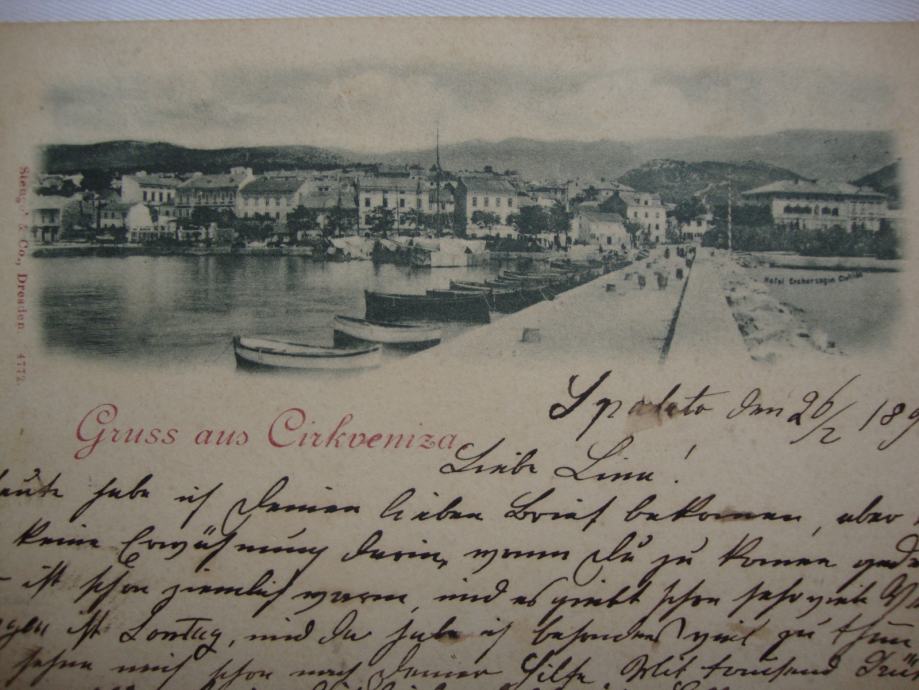 Stengel & Co., Dresden. 4772.
Hotel Erzherzogin Clotilde
Gruss aus Cirkveniza
Spalato den 26/2 189
Liebe Lina!
Heute habe ich Deinen lieben Brief bekomen, aber
keine Erwähnung darin, wann Du zu komen
ist schon ziemlich warm, und es giebt schon sehr viel
ist Sontag, und da habe ich besonders viel zu thun
sehne mich schon nach Deiner Hilfe. Mit tausend